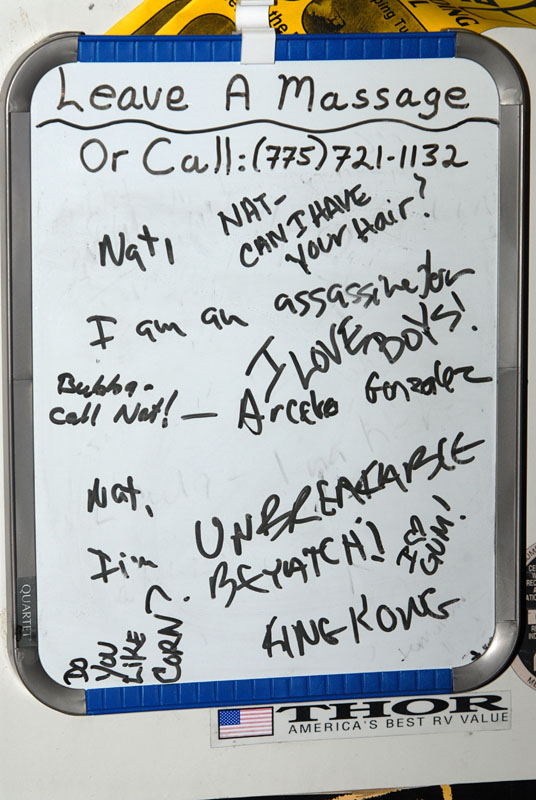 Leave A Massage
Or Call: (775) 721-1132
Nat,
NAT-
CAN I HAVE
YOUR HAIR?
I am an
I LOVE BOYS!
Bubba-
Call Nat! — Gonzalez
Nat,
I'm
UNBREAKABLE
BEYATCH!
ICE
GUM!
KONG
DO
YOU
LIKE
CORN?
QUARTET
THOR
AMERICA'S BEST RV VALUE